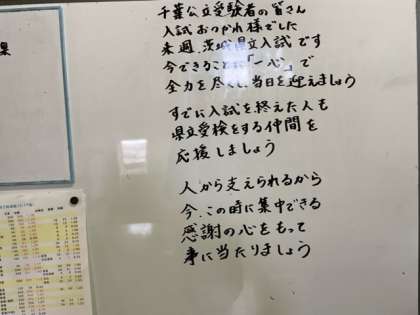 千葉公立受験者の皆さん
入試おつかれ様でした
来週、茨城県立入試です
今できることに「一心」で
全力を尽くし、当日を迎えましょう
すでに入試を終えた人も
県立受検をする仲間を
応援しましょう
人から支えられるから
今、この時に集中できる
感謝の心をもって
事に当たりましょう